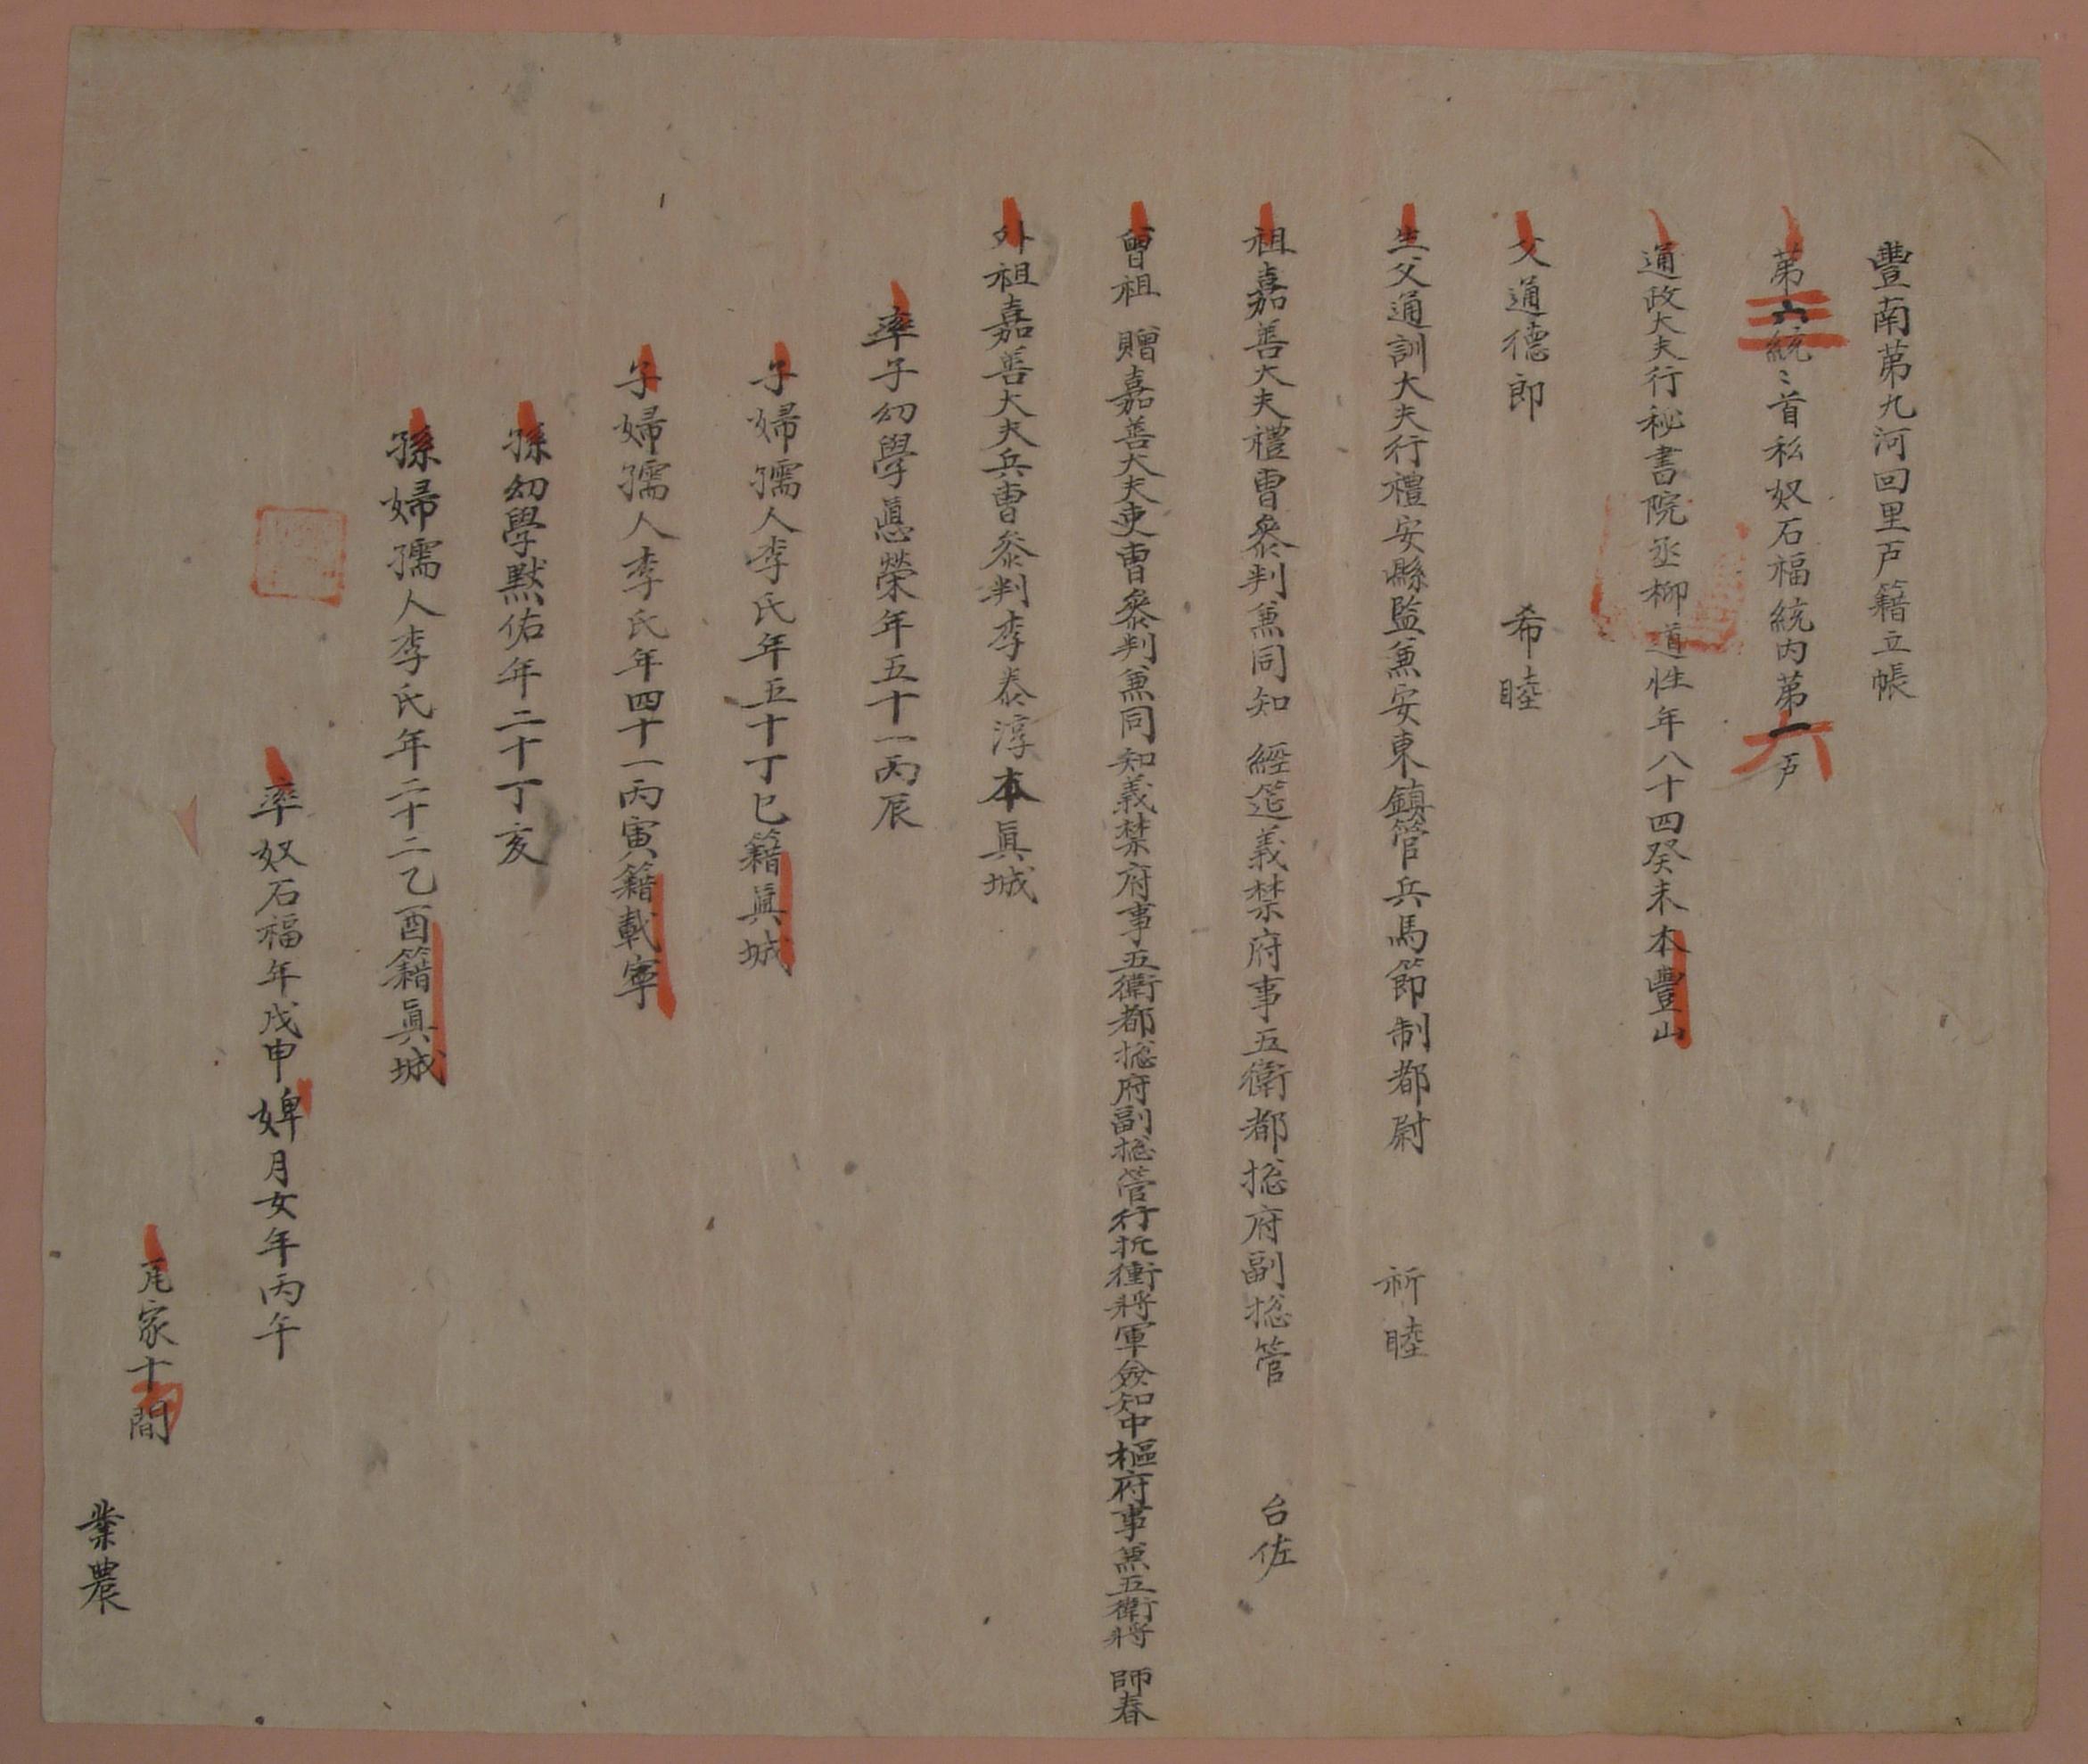 豐南第九河回里戶籍立帳
第六統〻首私奴石福統內第一戶
三
六
通政大夫行秘書院丞柳道性年八十四癸未本豐山
父通德郎 希睦
生父通訓大夫行禮安縣監兼安東鎭管兵馬節制都尉 祈睦
祖嘉善大夫禮曹叅判兼同知 經筵義禁府事五衛都摠府副摠管 台佐
曾祖 贈嘉善大夫吏曹叅判兼同知義禁府事五衛都摠府副摠管行折衝將軍僉知中樞府事兼五衛將 師春
外祖嘉善大夫兵曹叅判李泰淳本眞城
率子幼學慐榮年五十一丙辰
子婦孺人李氏年五十丁巳籍眞城
子婦孺人李氏年四十一丙寅籍載寧
孫幼學默佑年二十丁亥
孫婦孺人李氏年二十二乙酉籍眞城
率奴石福年戊申婢月女年丙午
瓦家十間
業農